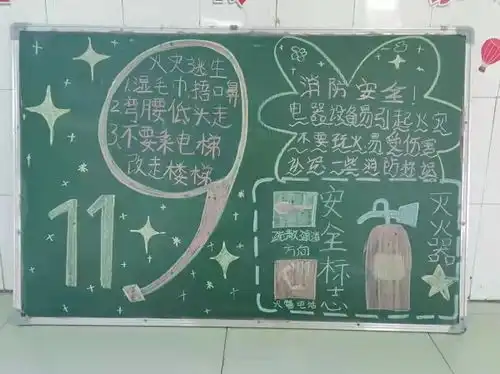 火灾逃生
1.湿毛巾捂口鼻
2.弯腰低头走
3.不要乘电梯
改走楼梯
119
消防安全!
电器设备易引起火灾
不要玩火易受伤害
安全标志
疏散通道
方向
火警电话
灭火器